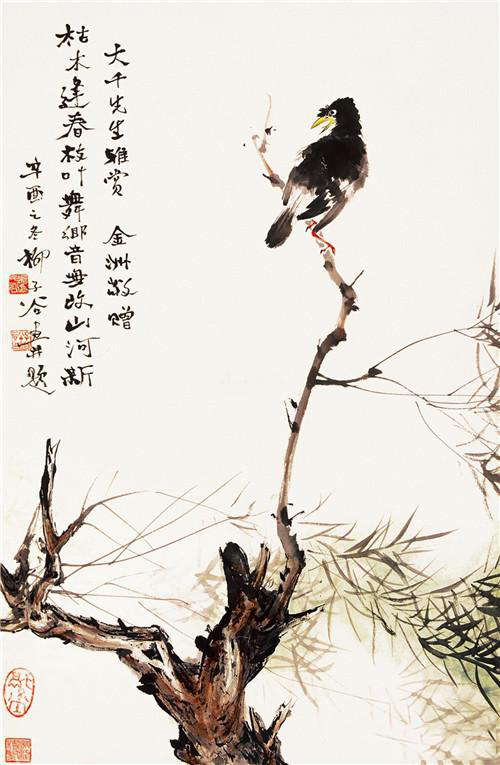 大千先生雅赏 金洲敬赠
枯木逢春枝叶舞乡音无改山河新
辛酉之冬柳子谷画并题